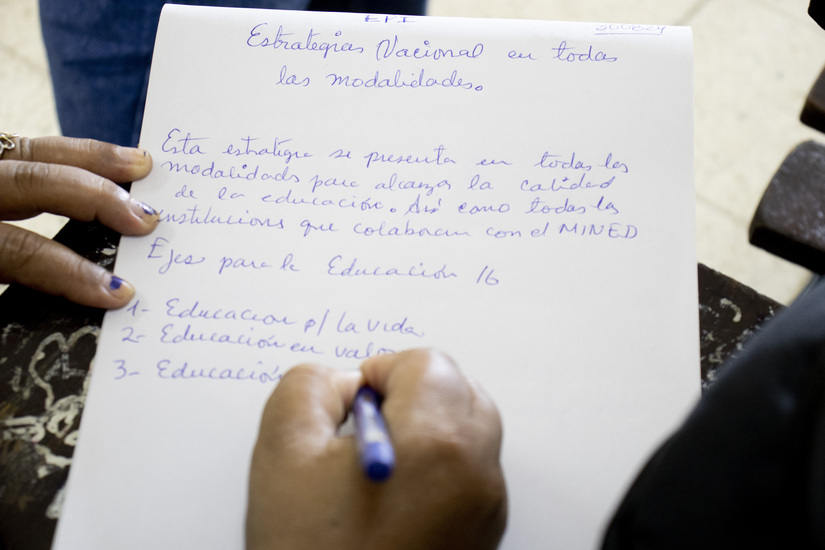 EPI
Estrategias Nacional en todas
las modalidades.
Esta estrategie se presenta en todas las
modalidads para alcanzar la calidad
de la educación. Así como todas las
instituciones que colaboran con el MINED
Ejes para la Educación 16
1- Educacion p/ la vida
2- Educación en valo
3- Educación